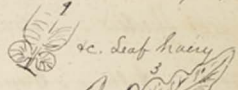 9
&c. Leaf hairy
3